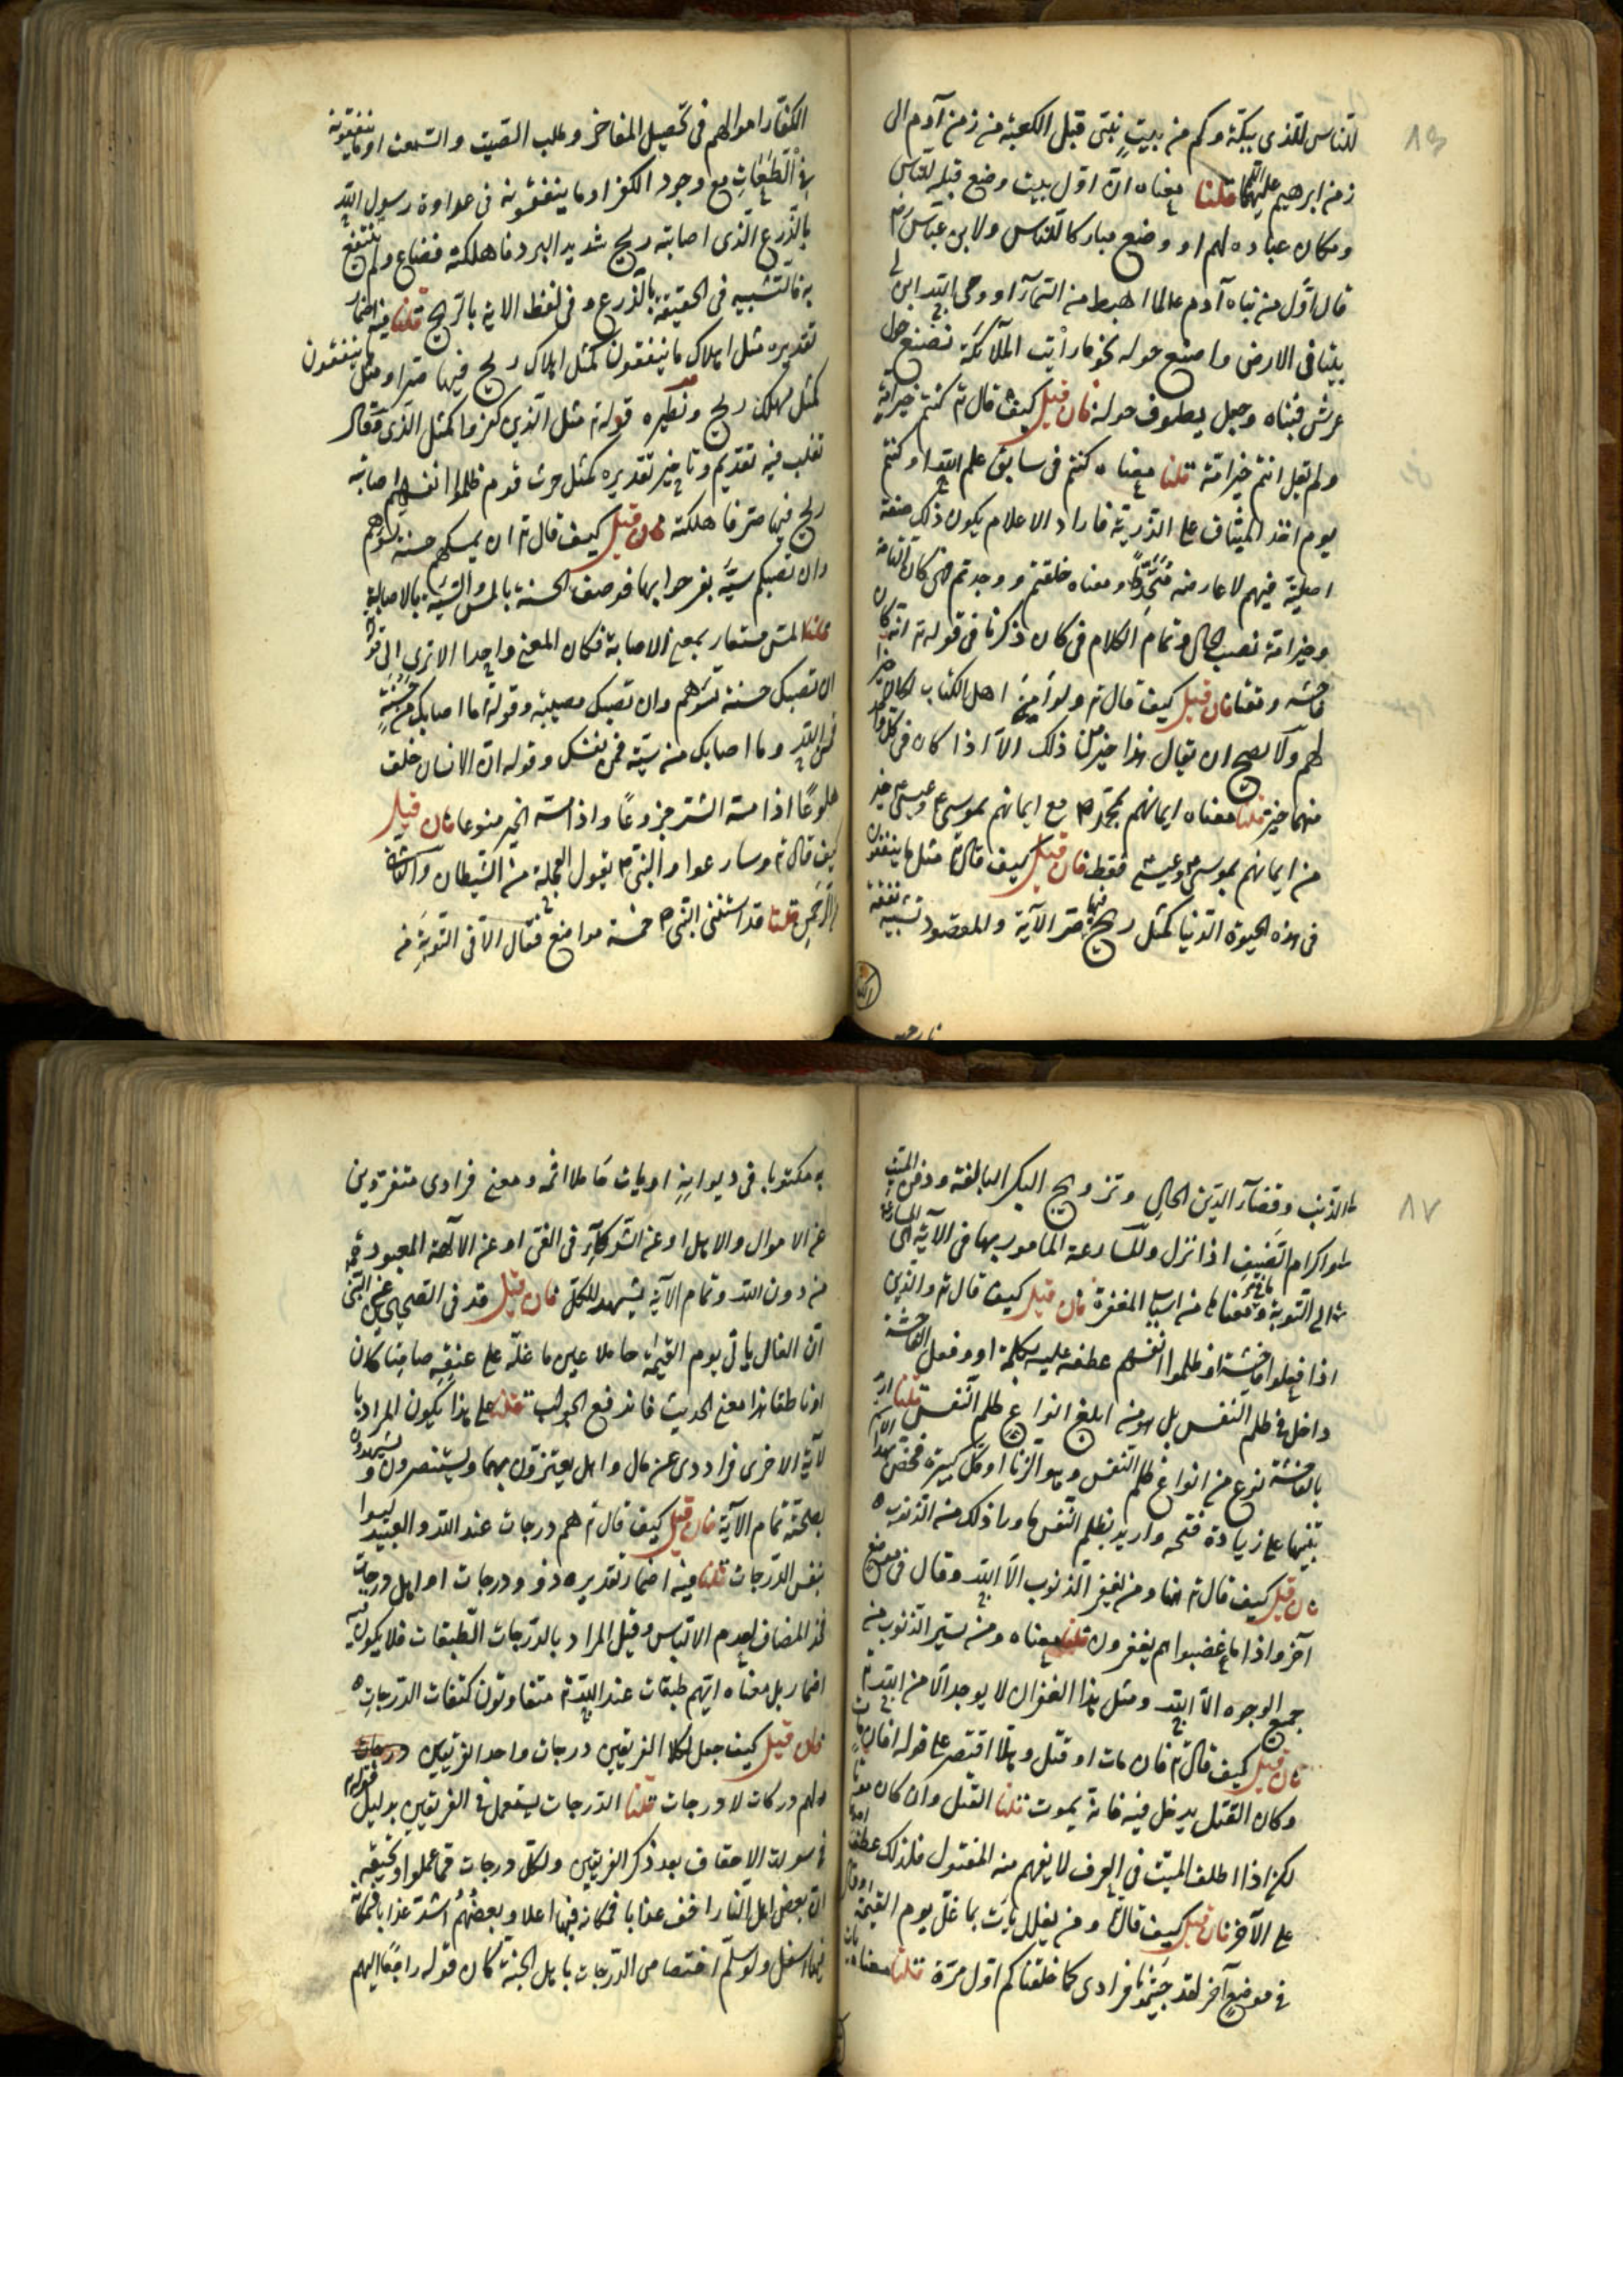 ٨٦
للناس للذى ببكة وكم من بيت بنى قبل الكعبة من زمن آدم الى
زمن ابرهيم عليهما قلنا معناه ان اول بيت وضع قبلة للناس
ومكان عباده لهم او وضع مباركا للناس ولا بن عباس
قال اول من بناه آدم عالما اهبط من السمآء اوحى الله ابن لى
بيتا فى الارض واصنع حوله نحو ما رأيت الملآئكة تصنع حول
عرشى فبناه وجعل يطوف حوله فان قيل كيف قال تع كنتم خير امة
ولم يقل انتم خير امة قلنا معناه كنتم فى سابق علم الله او كنتم
يوم اخذ الميثاق على الذرية فاراد الاعلام بكون ذلك صفة
اصلية فيهم لا عارضه متجددا ومعناه خلقتم ووجدتم فهى كان التامة
وخير امة نصب حال وتمام الكلام فى كان ذكرنا فى قوله تع انه كان
فاحشة ومقتا فان قيل كيف قال تع ولو آمن اهل الكتاب لكان خيرا
لهم ولا يصح ان يقال هذا خير من ذلك الا اذا كان فى كل واحد
منهما خير قلنا معناه ايمانهم بمحمد ص مع ايمانهم بموسى وعيسى خير
من ايمانهم بموسى وعيسى فقط فان قيل كيف قال تع مثل ما ينفقون
فى هذه الحيوة الدنيا كمثل ريح فيها صر الآية والمقصود تشبيه نفقة
الكفار اموالهم فى تحصيل المفاخر وطلب الصيت والسمعة او ما ينفقونه
فى الطاعات مع وجود الكفر او ما ينفقونه فى عداوة رسول الله
بالزرع الذى اصابته ريح شديد البرد فاهلكته فضاع ولم ينتفع
به فالتشبيه فى الحقيقة بالزرع وفى لفظ الاية بالريح قلنا فيه اضمار
تقديره مثل اهلاك ما ينفقون كمثل اهلاك ريح فيها صر او مثل ما ينفقون
كمثل مهلك ريح ونظيره قوله تع مثل الذين كفروا كمثل الذى وقال
ثعلب فيه تقديم وتاخير تقديره كمثل حرث قوم ظلموا انفسهم اصابته
ريح فيها صر فاهلكته فان قيل كيف قال تع ان تمسسكم حسنة تسؤهم
وان تصبكم سيئة يفرحوا بها فوصف الحسنة بالمس والسيئة بالاصابة
قلنا المس مستعار بمعنى الاصابة فكان المعنى واحدا الا ترى الى قوله
ان تصبك حسنة تسؤهم وان تصبك مصيبة وقوله ما اصابك من حسنة
فمن الله وما اصابك من سيئة فمن نفسك وقوله ان الانسان خلق
هلوعا اذا مسه الشر جزوعا واذا مسه الخير منوعا فان قيل
كيف قال تع وسارعوا والنبى ع يقول العجلة من الشيطان والتانى
من الرحمن قلنا قد استثنى النبى ص خمسة مواضع فقال الا فى التوبة من
٨٧
الذنب وقضآء الدين الحال وتزويج البكر البالغة ودفن الميت
واكرام الضيف اذا نزل والمسارعة المامور بها فى الآية هى المسارعة
الى التوبة وما فى معناها من اسباب المغفرة فان قيل كيف قال تع والذين
اذا فعلوا فاحشة او ظلموا انفسهم عطف عليه بكلمة او وفعل الفاحشة
داخل فى ظلم النفس بل هو من ابلغ انواع ظلم النفس قلنا اريد
بالفاحشة نوع من انواع ظلم النفس وهو الزنا او كل كبيرة فخص بهذا الاسم
تنبيها على زيادة قبحه واريد بظلم النفس ما ورا ذلك من الذنوب
فان قيل كيف قال تع هنا ومن يغفر الذنوب الا الله وقال فى موضع
آخر واذا ما غضبوا هم يغفرون قلنا معناه ومن يستر الذنوب من
جميع الوجوه الا الله ومثل هذا الغفران لا يوجد الا من الله تع
فان قيل كيف قال تع فان مات او قتل وهلا اقتصر على قوله افان مات
وكان القتل يدخل فيه فانه يموت قلنا القتل وان كان موتا
لكن اذا اطلق الميت فى العرف لا يفهم منه المقتول فلذلك عطف احدهما
على الآخر فان قيل كيف قال تع ومن يغلل يات بما غل يوم القيمة وقال
فى موضع آخر لقد جئتمونا فرادى كما خلقناكم اول مرة قلنا معناه يات
به مكتوبا فى ديوانه او يات حاملا اثمه ومعنى فرادى متفردين
عن الاموال والاهل او عن الشركآء فى الغى او عن الآلهة المعبودة
من دون الله وتمام الآية يشهد للكل فان قيل قد فى الصحيح عن النبى
ان الغال ياتى يوم القيمة حاملا عين ما غله على عنقه صامتا كان
او ناطقا هذا معنى الحديث فاندفع الجواب قلنا على هذا يكون المراد با
لآية الاخرى فرادى عن مال واهل يعتزون بهما ويستنصرون ويشهد
بصحته تمام الآية فان قيل كيف قال تع هم درجات عند الله والعبيد ليسوا
نفس الدرجات قلنا فيه اضمار تقديره ذوو درجات او اهل درجات
فحذف المضاف لعدم الالتباس وقيل المراد بالدرجات الطبقات فلا يكون فيه
اضمار بل معناه انهم طبقات عند الله تع متفاوتون كتفاوت الدرجات
فان قيل كيف جعل لكلا الفريقين درجات واحد الفريقين
لهم دركات لا درجات قلنا الدرجات يستعمل فى الفريقين بدليل قوله تع
فى سورت الاحقاف بعد ذكر الفريقين ولكل درجات مما عملوا وتحقيقه
ان بعض اهل النار اخف عذابا فمكانه فيها اعلا وبعضهم اشد عذابا فمكانه
فيها اسفل ولو سلم اختصاص الدرجات باهل الجنة كان قوله راجعا اليهم